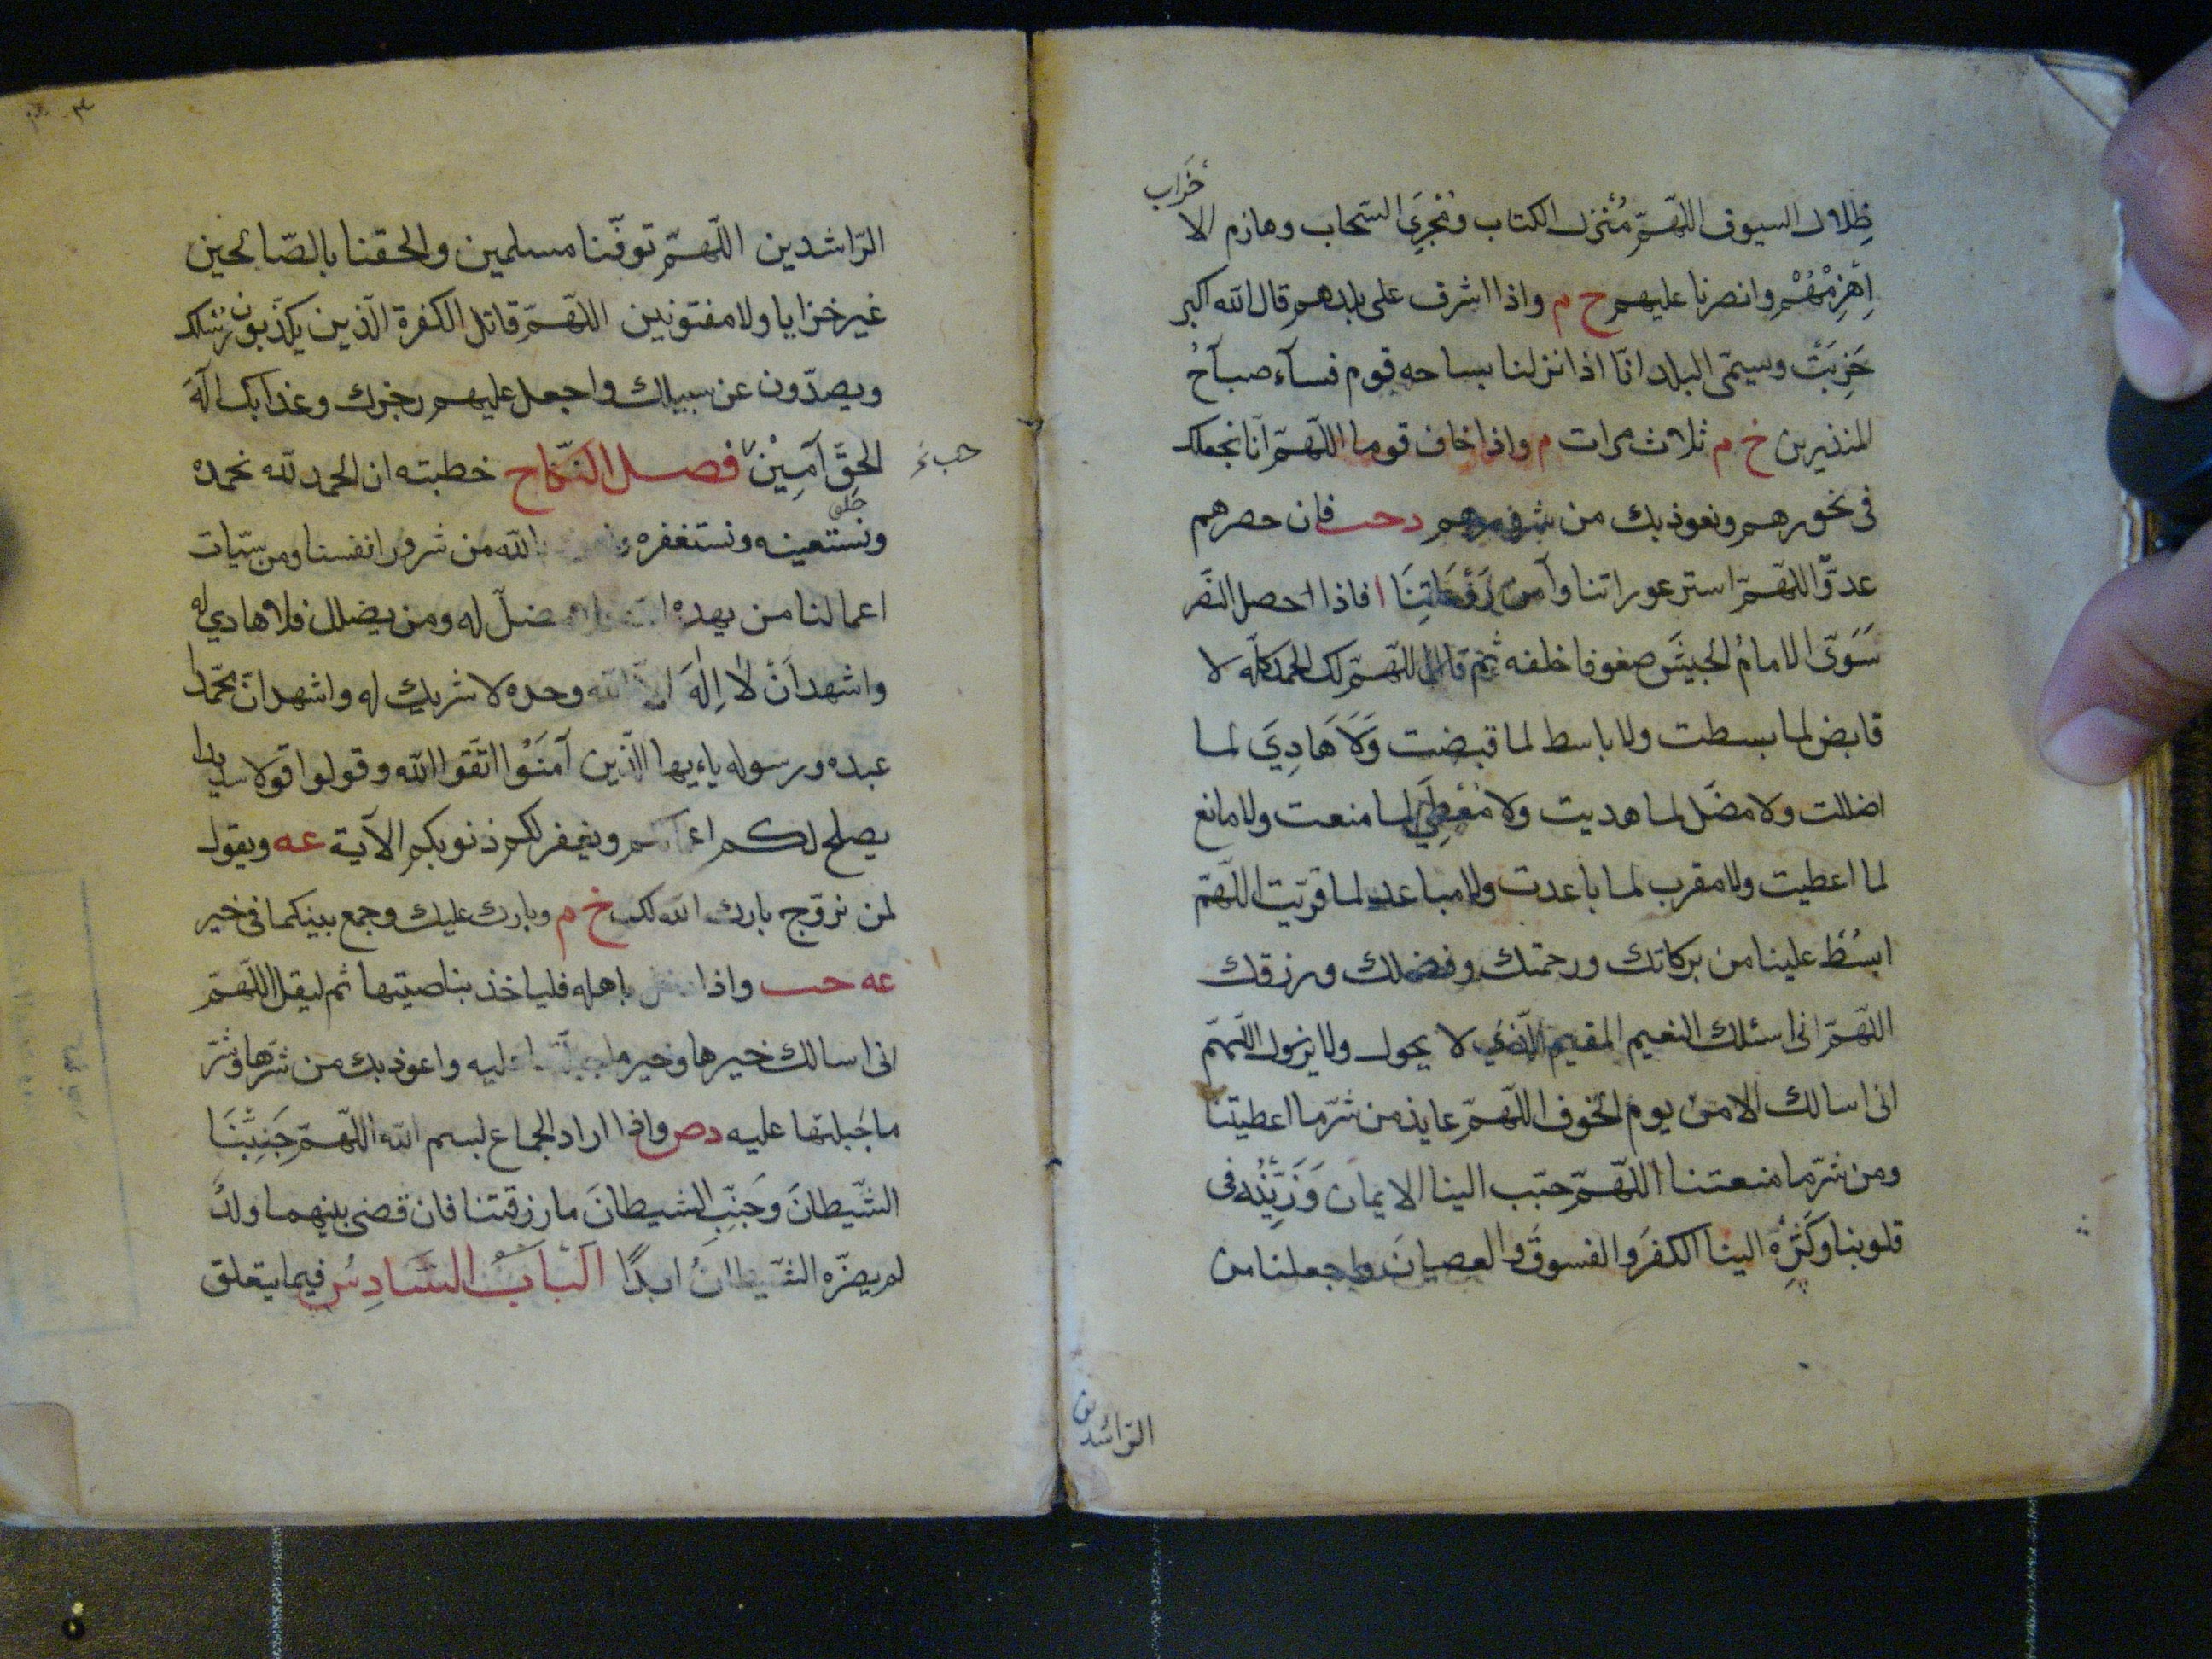 ظِلال السيوف اللهمّ مُنْزل الكتاب ومُجْرِيَ السّحاب وهازم الاحْزَاب
اِهْزِمْهُمْ وانصرنا عليهم خ م واذا اشرف على بلدهم قال الله اكبر
خَرِبَتْ وسيمّى البلد انّا اذا نزلنا بساحه قوم فسآء صبآحُ
المنذرين خ م ثلاث مرات م واذا خاف قوما اللهمّ انا نجعلك
فى نحورهم ونعوذ بك من شرورهم د حب فان حصرهم
عدوّ اللهمّ استر عوراتنا وآمن رَوْعَاتِنَا ا فاذا احصل النصر
سَوَّى الامامُ الجيشَ صفوفا خلفه ثم قال اللهمّ لك الحمد كلّه لا
قابض لما بسطت ولا باسط لما قبضت وَلَا هَادِيَ لما
اضللت ولا مضلّ لما هديت ولا مُعْطِيَ لما منعت ولا مانع
لما اعطيت ولا مقرب لما باعدت ولا مباعد لما قربت اللهمّ
ابسُطْ علينا من بركاتك ورحمتك وفضلك ورزقك
اللهمّ انى اسئلك النعيم المقيم الّذي لا يحول ولا يزول اللهمّ
انى اسالك الامن يوم الخوف اللهمّ عايذ من شرّ ما اعطيتنا
ومن شرّ ما منعتنا اللهمّ حبّب الينا الايمان وَزَيِّنْه فى
قلوبنا وكَرِّهْ الينا الكفرَ والفسوقَ والعصيانَ واجعلنا من
الرّاشدين
الرّاشدين اللهمّ توفّنا مسلمين والحقنا بالصّالحين
غير خزايا ولا مفتونين اللهمّ قاتل الكفرة الّذين يكذّبون رسلك
ويصدّون عن سبيلك واجعل عليهم رجزك وعذابك الٓهَ
الحقّ آمِيْن فصل النّكاح خطبته ان الحمد لله نحمده
ونستعينه ونستغفره بالله من شرور انفسنا ومن سيّات
اعمالنا من يهده الله فلا مضلّ له ومن يضلل فلا هادي له
واشهد اَنْ لا اِلٰهَ الّا الله وحده لا شريك له واشهد انّ محمّدا
عبده ورسوله ياءيها الّذين آمَنُوا اتقَوا الله وقولوا قولا سديدا
يصلح لكم اعمالكم ويغفر لكم ذنوبكم الآية عه ويقول
لمن تزوّج بارك الله لك خ م وبارك عليك وجمع بينكما فى خير
عه حب واذا باهله فلياخذ بناصيتها ثم ليقل اللهمّ
انى اسالك خيرها وخير ما جبلتها عليه واعوذ بك من شرّها وشرّ
ما جَبلتها عليه د ص واذا اراد الجماع بسم الله اللهمّ جَنِّبْنَا
الشّيطانَ وَجَنِّبِ الشيطانَ ما رزقتنا فان قضى بينهما ولدٌ
لم يضرّه الشّيطانُ ابدًا اَلبَابُ السَّادِسُ فيما يتعلق